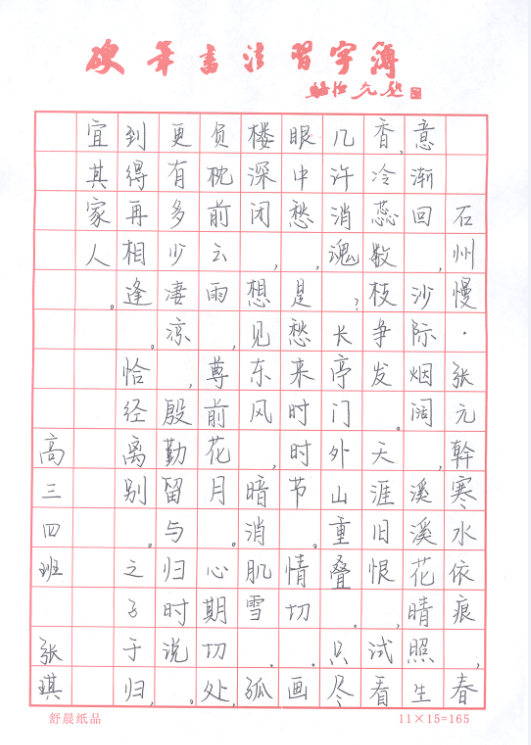 硬筆書法習字簿
石州慢·张元幹寒水依痕,春
意渐回,沙际烟阔,溪溪花晴照生
香,冷蕊数枝争发。天涯旧恨,试看
几许消魂?长亭门外山重叠。只尽
眼中愁,是愁来时时节。情切。画
楼深闭,想见东风,暗消肌雪。孤
负枕前云雨,尊前花月。心期切处,
更有多少凄凉,殷勤留与归时说。
到得再相逢。恰经离别。之子于归,
宜其家人。
高三四班 张琪
舒晨纸品
11×15=165